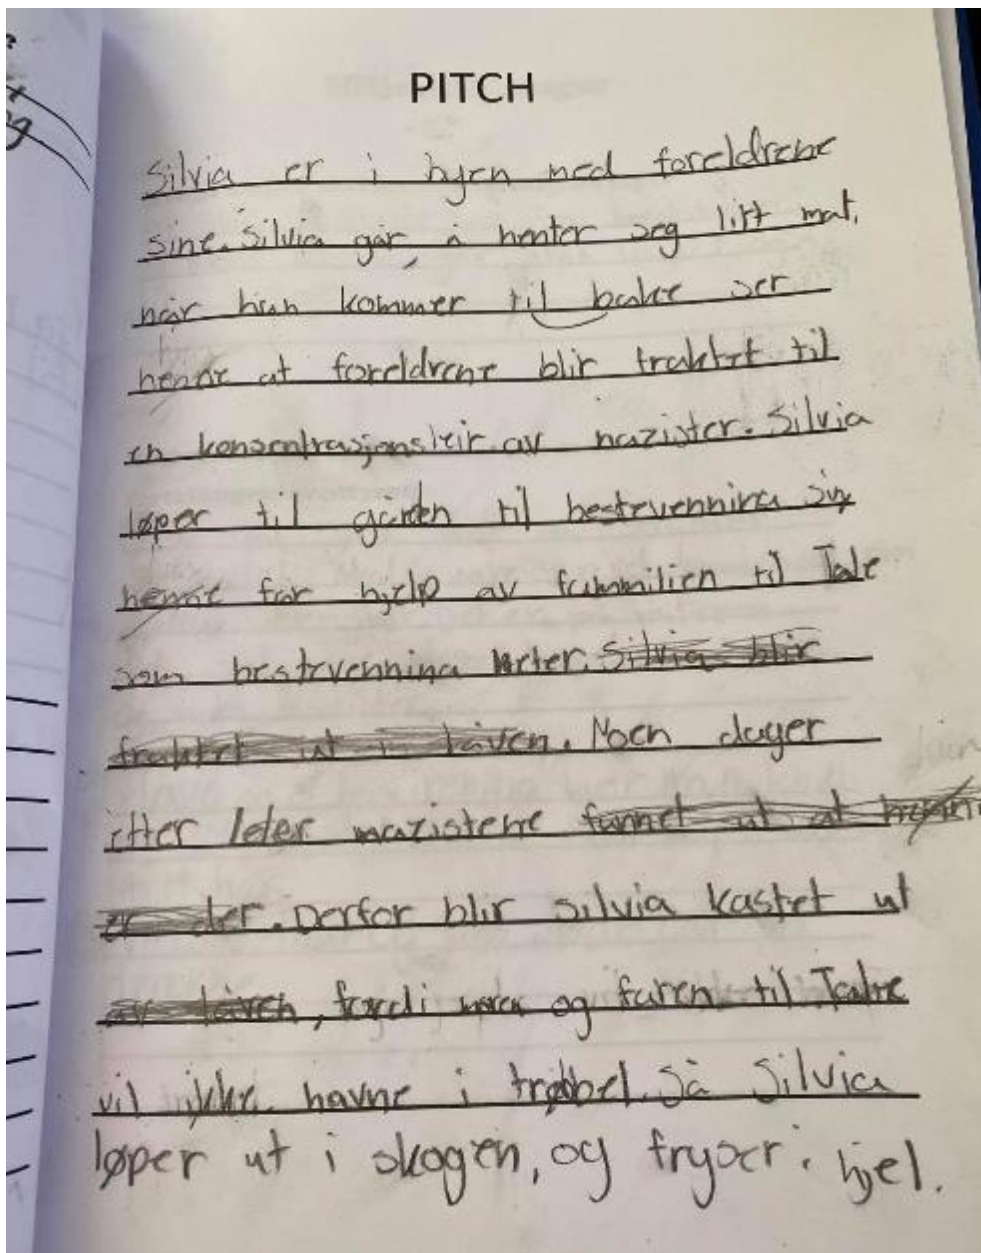 PITCH
Silvia er i byen med foreldrene
sine. Silvia går, å henter seg litt mat.
når hun kommer til bake ser
henne at foreldrene blir fraktet til
en konsentrasjonsleir av nazister. Silvia
løper til gården til bestevennina sin
henne får hjelp av fammilien til Tale
som bestevennina heter. Silvia blir
fraktet ut i låven. Noen dager
etter leter nazistene funnet ut at
er der. Derfor blir silvia kastet ut
av låven, fordi mora og faren til Tale
vil ikke havne i trøbbel. Så Silvia
løper ut i skogen, og fryser i hjel.